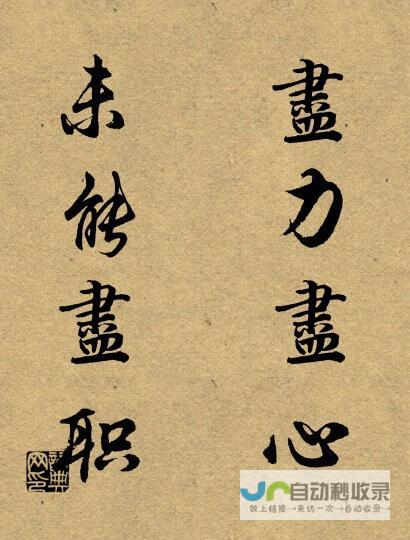 盡力盡心
未能盡职
自动秒收录
做上链接→来访一次→自动收录